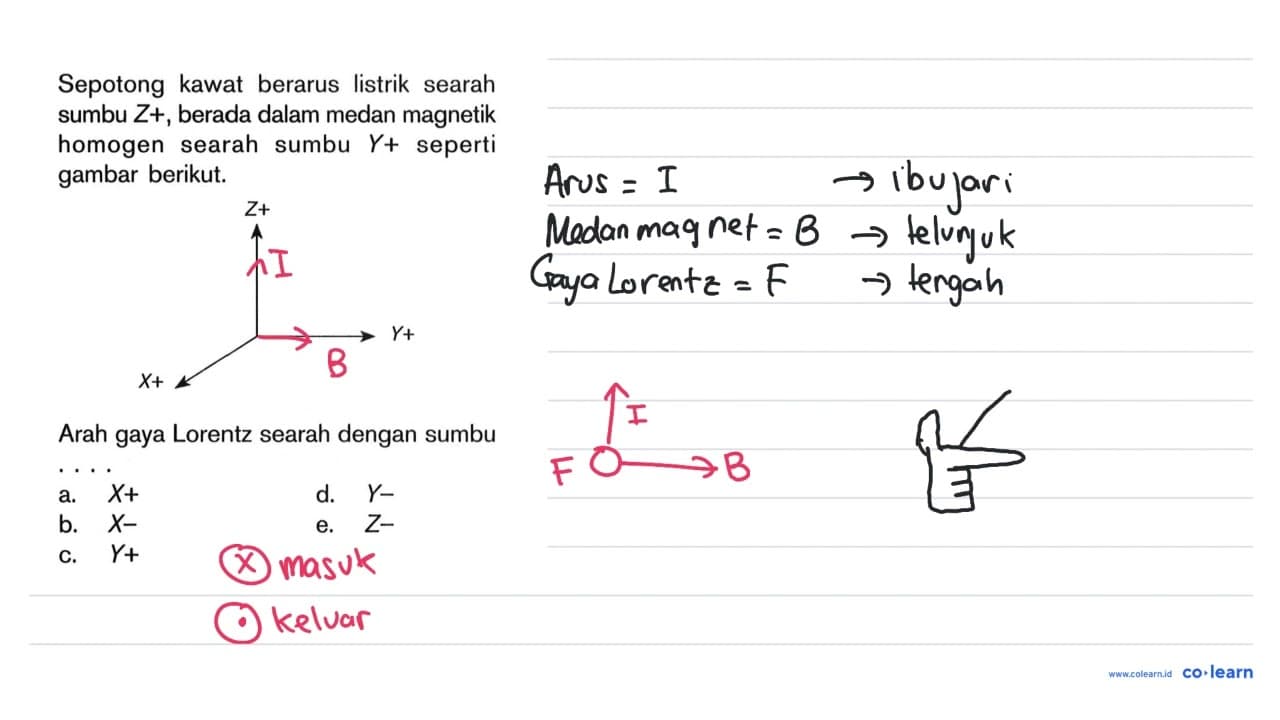 Sepotong kawat berarus listrik searah
sumbu Z+, berada dalam medan magnetik
homogen searah sumbu Y+ seperti
gambar berikut.
Z+
I
Y+
B
X+
Arah gaya Lorentz searah dengan sumbu
. . . .
a. X+
d. Y–
b. X–
e. Z–
c. Y+
X masuk
keluar
Arus = I → ibu jari
Medan magnet = B → telunjuk
Gaya Lorentz = F → tengah
I
F
B
www.colearn.id co·learn